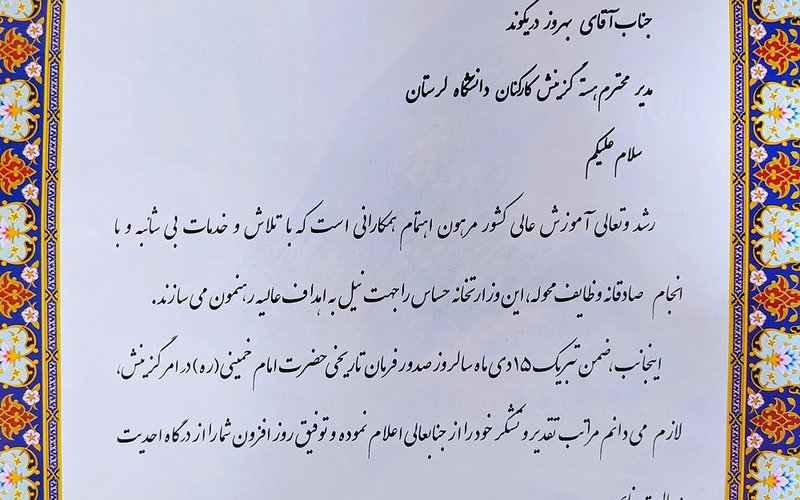 جناب آقای بهروز دریکوند
مدیر محترم هسته گزینش کارکنان دانشگاه لرستان
سلام علیکم
رشد وتعالی آموزش عالی کشور مرهون اهتمام همکارانی است که با تلاش و خدمات بی شائبه و با
انجام صادقانه وظایف محوله، این وزارتخانه حساس را جهت نیل به اهداف عالیه رهنمون می سازند.
اینجانب، ضمن تبریک ۱۵ دی ماه سالروز صدور فرمان تاریخی حضرت امام خمینی (ره) در امر گزینش،
لازم می دانم مراتب تقدیر و تشکر خود را از جنابعالی اعلام نموده و توفیق روز افزون شما را از درگاه احدیت